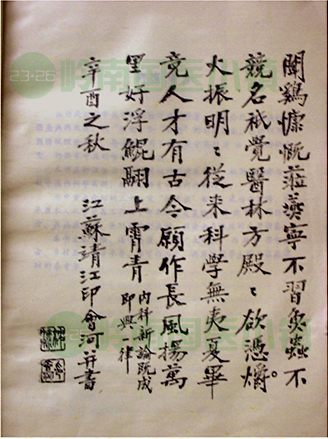 聞鷄慷慨蒞寧不習魚蟲不
競名祇覺醫林方殿〻欲憑爝
火振明〻從来科學無夷夏畢
竟人才有古今願作長風揚萬
里好浮鯤翮上霄青
内科新論既成
即興一律
辛酉之秋 江蘇靖江印會河并書
23-26 岭南国医小镇